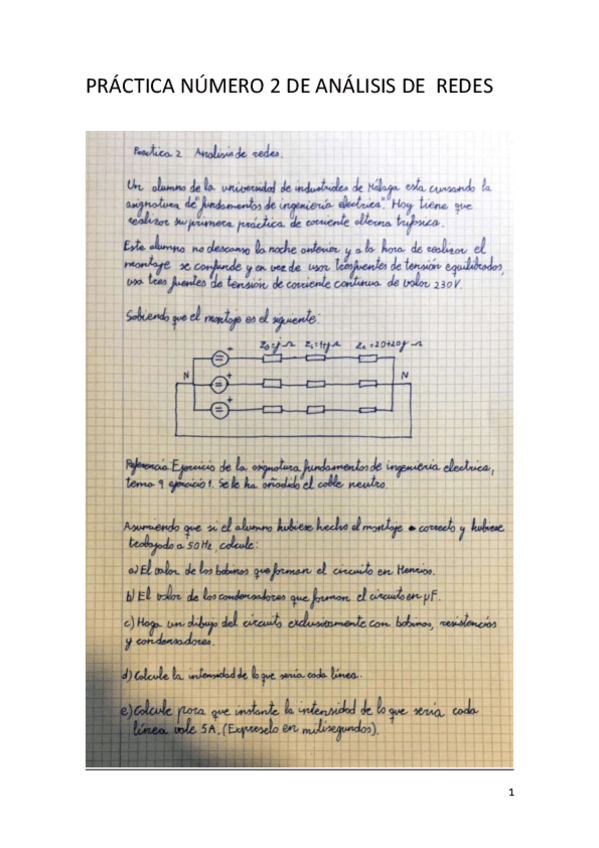 PRÁCTICA NÚMERO 2 DE ANÁLISIS DE REDES
Practica 2 Analisis de redes.
Un alumno de la universidad de industriales de Málaga esta cursando la
asignatura de "fundamentos de ingeniería electrica". Hoy tiene que
realizar su primera práctica de corriente alterna trifasica.
Este alumno no descanso la noche anterior y a la hora de realizar el
montaje se confunde y en vez de usar tres fuentes de tensión equilibradas,
usa tres fuentes de tensión de corriente continua de valor 230V.
Sabiendo que el montaje es el siguiente:
Zg=j Ω Zl=1+j Ω Zc=20+20j Ω
N N
Referencia: Ejercicio de la asignatura fundamentos de ingenieria electrica,
tema 9 ejercicio 1. Se le ha añadido el cable neutro.
Asumiendo que si el alumno hubiese hecho el montaje correcto y hubiese
trabajado a 50Hz, calcule:
a) El valor de las bobinas que forman el circuito en Henrios.
b) El valor de los condensadores que forman el circuito en μF.
c) Haga un dibujo del circuito exclusivamente con bobinas, resistencias
y condensadores.
d) Calcule la intensidad de lo que seria cada línea.
e) Calcule para que instante la intensidad de lo que seria cada
línea vale 5A. (Expreselo en milisegundos).
1